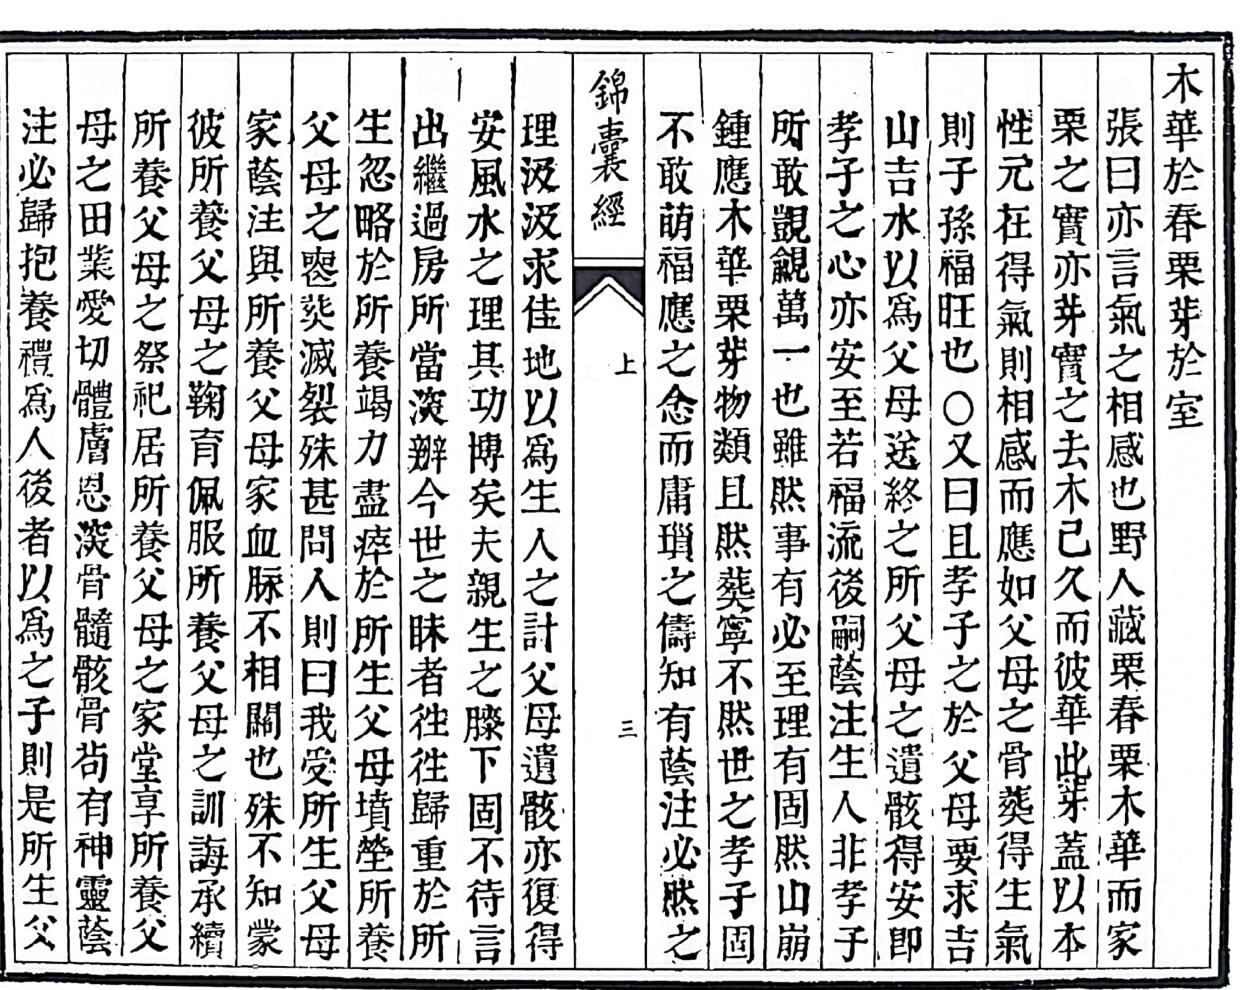 木華於春栗芽於室
張曰亦言氣之相感也野人藏栗春栗木華而家
栗之實亦芽實之去木已久而彼華此芽蓋以本
性元在得氣則相感而應如父母之骨葬得生氣
則子孫福旺也〇又曰且孝子之於父母要求吉
山吉水以爲父母送終之所父母之遺骸得安即
孝子之心亦安至若福流後嗣蔭注生人非孝子
所敢覬覦萬一也雖然事有必至理有固然山崩
鍾應木華栗芽物類且然葬寧不然世之孝子固
不敢萌福應之念而庸瑣之儔知有蔭注必然之
錦囊經
上
三
理汲汲求佳地以爲生人之計父母遺骸亦復得
安風水之理其功博矣夫親生之膝下固不待言
出繼過房所當深辨今世之昧者徃徃歸重於所
生忽略於所養竭力盡瘁於所生父母墳塋所養
父母之喪葬滅裂殊甚問人則曰我受所生父母
家蔭注與所養父母家血脉不相關也殊不知蒙
彼所養父母之鞠育佩服所養父母之訓誨承續
所養父母之祭祀居所養父母之家堂享所養父
母之田業愛切體膚恩深骨髓骸骨尚有神靈蔭
注必歸抱養禮爲人後者以爲之子則是所生父